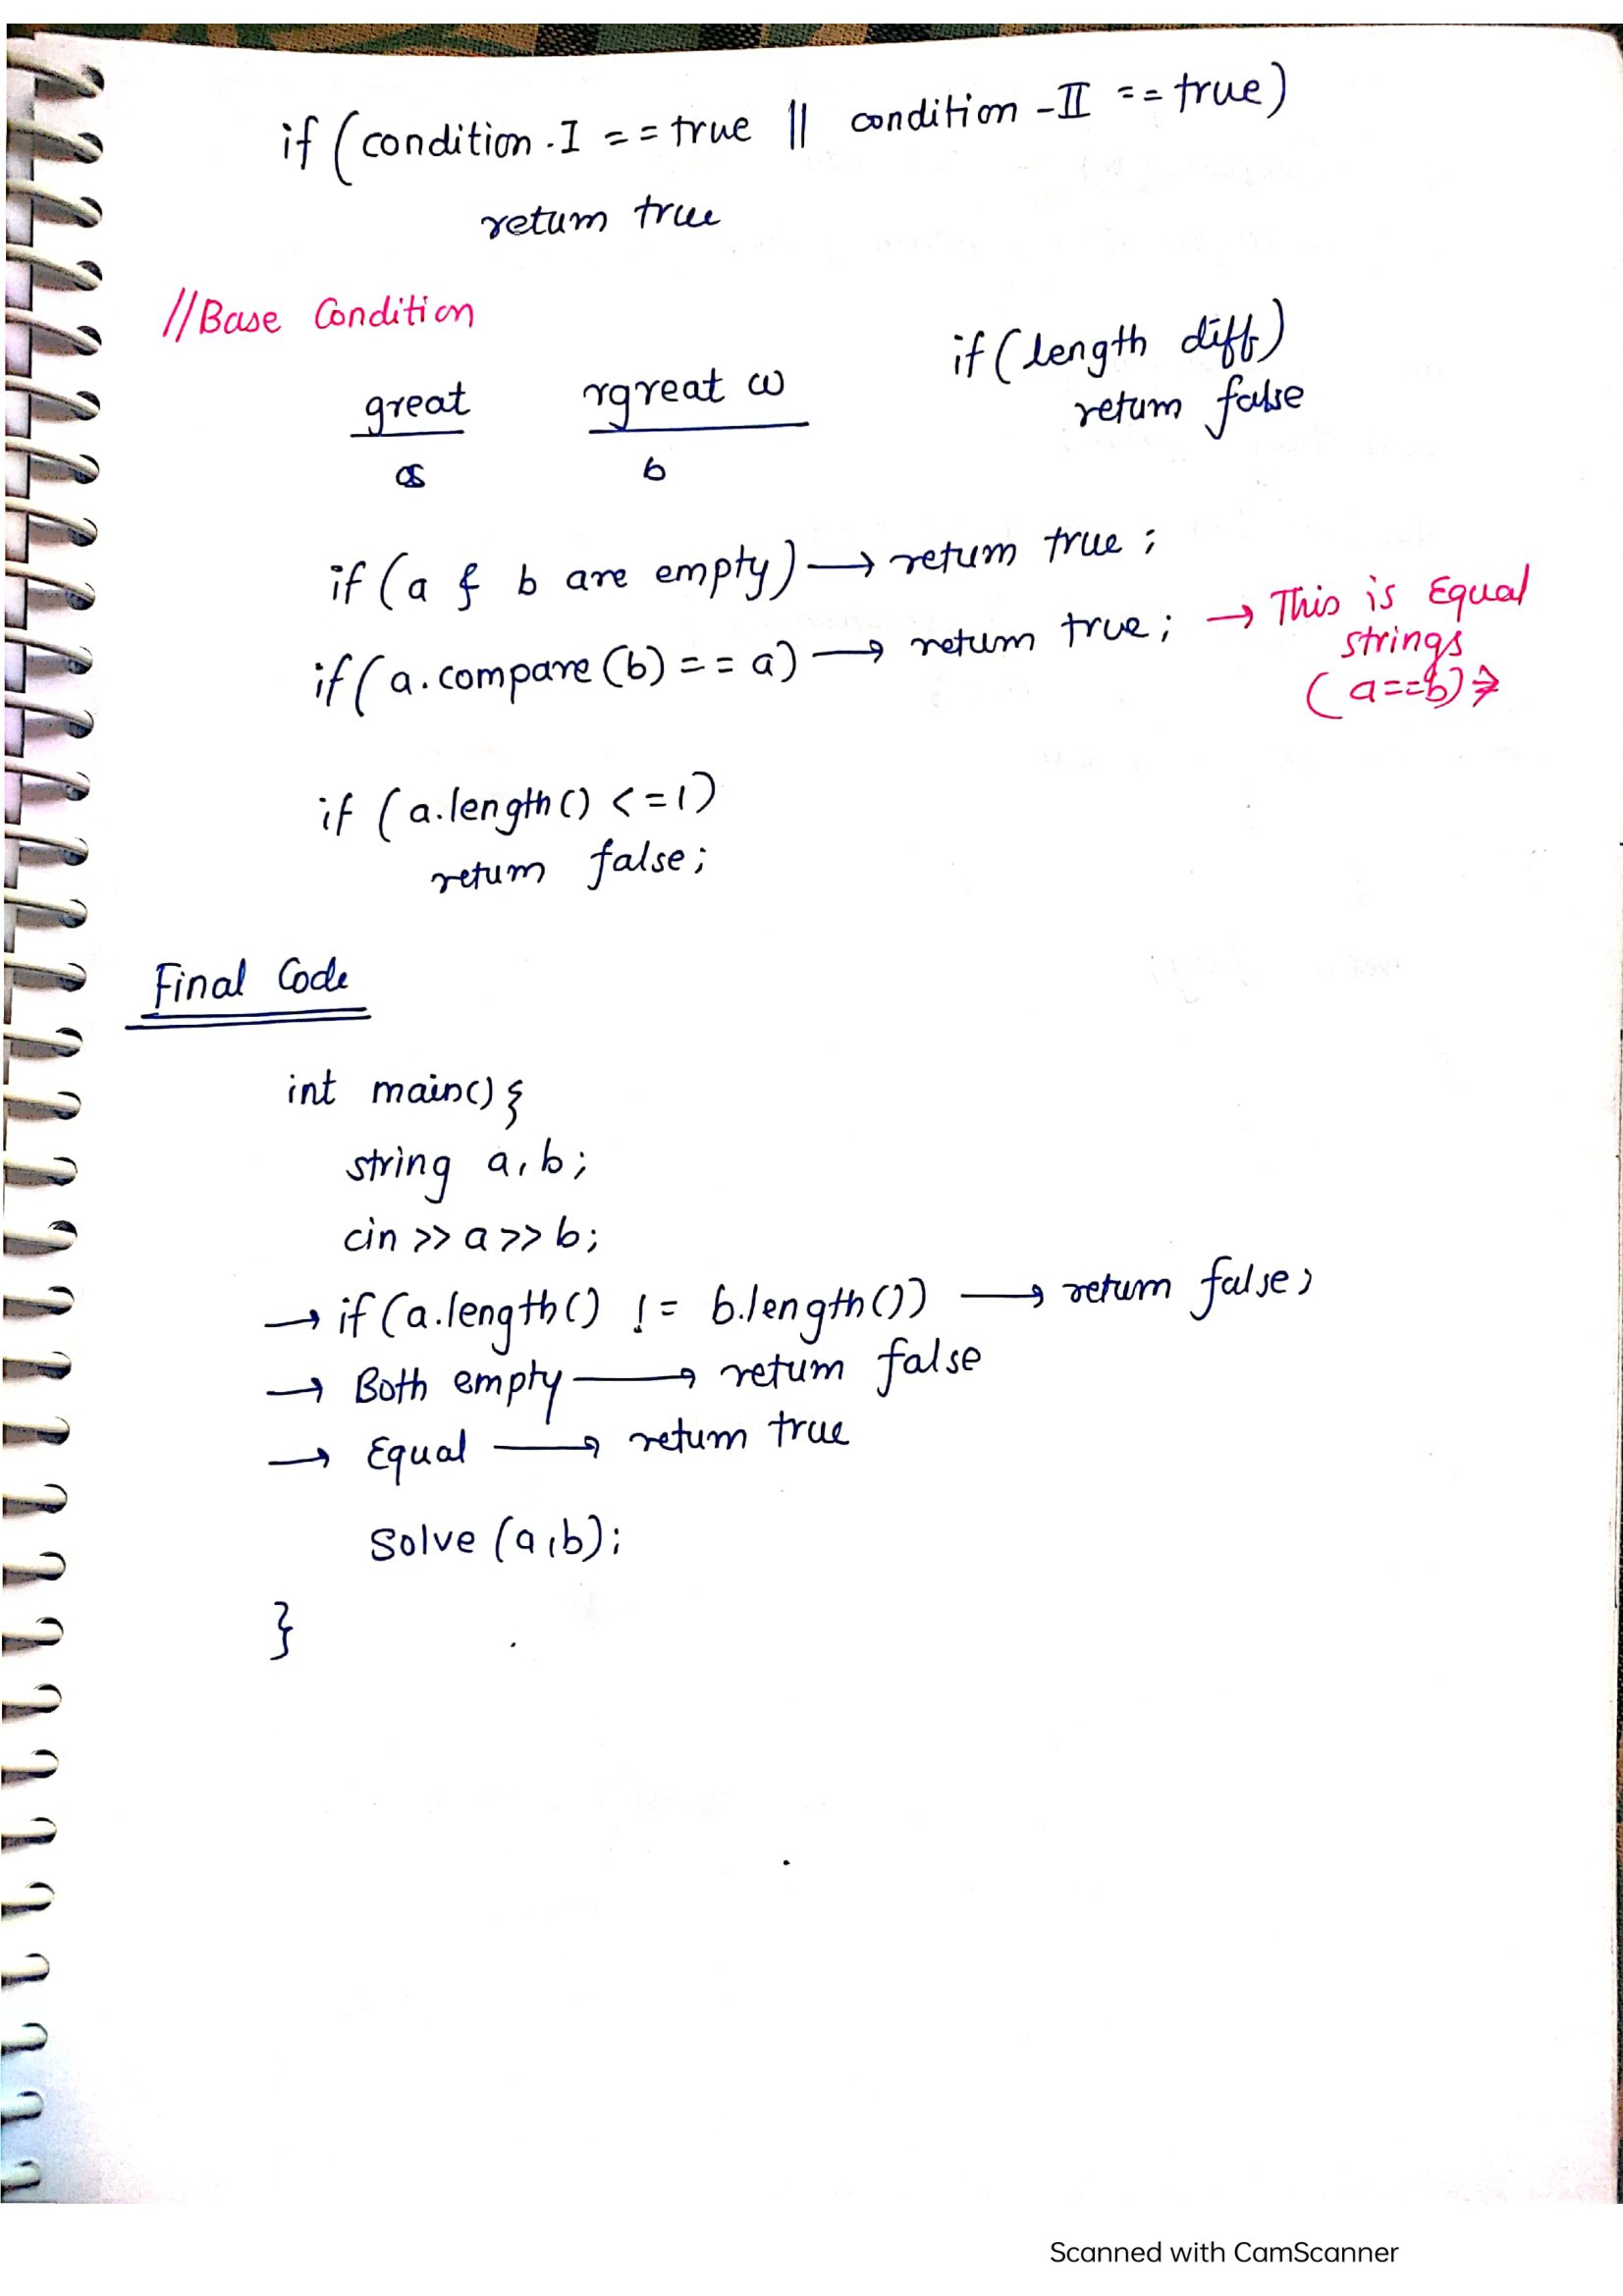 if (condition.I == true || condition-II == true)
return true
//Base Condition
great rgreat w
a b
if (length diff)
return false
if (a & b are empty) → return true;
if (a.compare(b) == a) → return true; → This is Equal
strings
(a==b) →
if (a.length() <= 1)
return false;
Final Code
int main() {
string a, b;
cin >> a >> b;
→ if (a.length() != b.length()) → return false;
→ Both empty → return false
→ Equal → return true
Solve (a,b);
}
Scanned with CamScanner